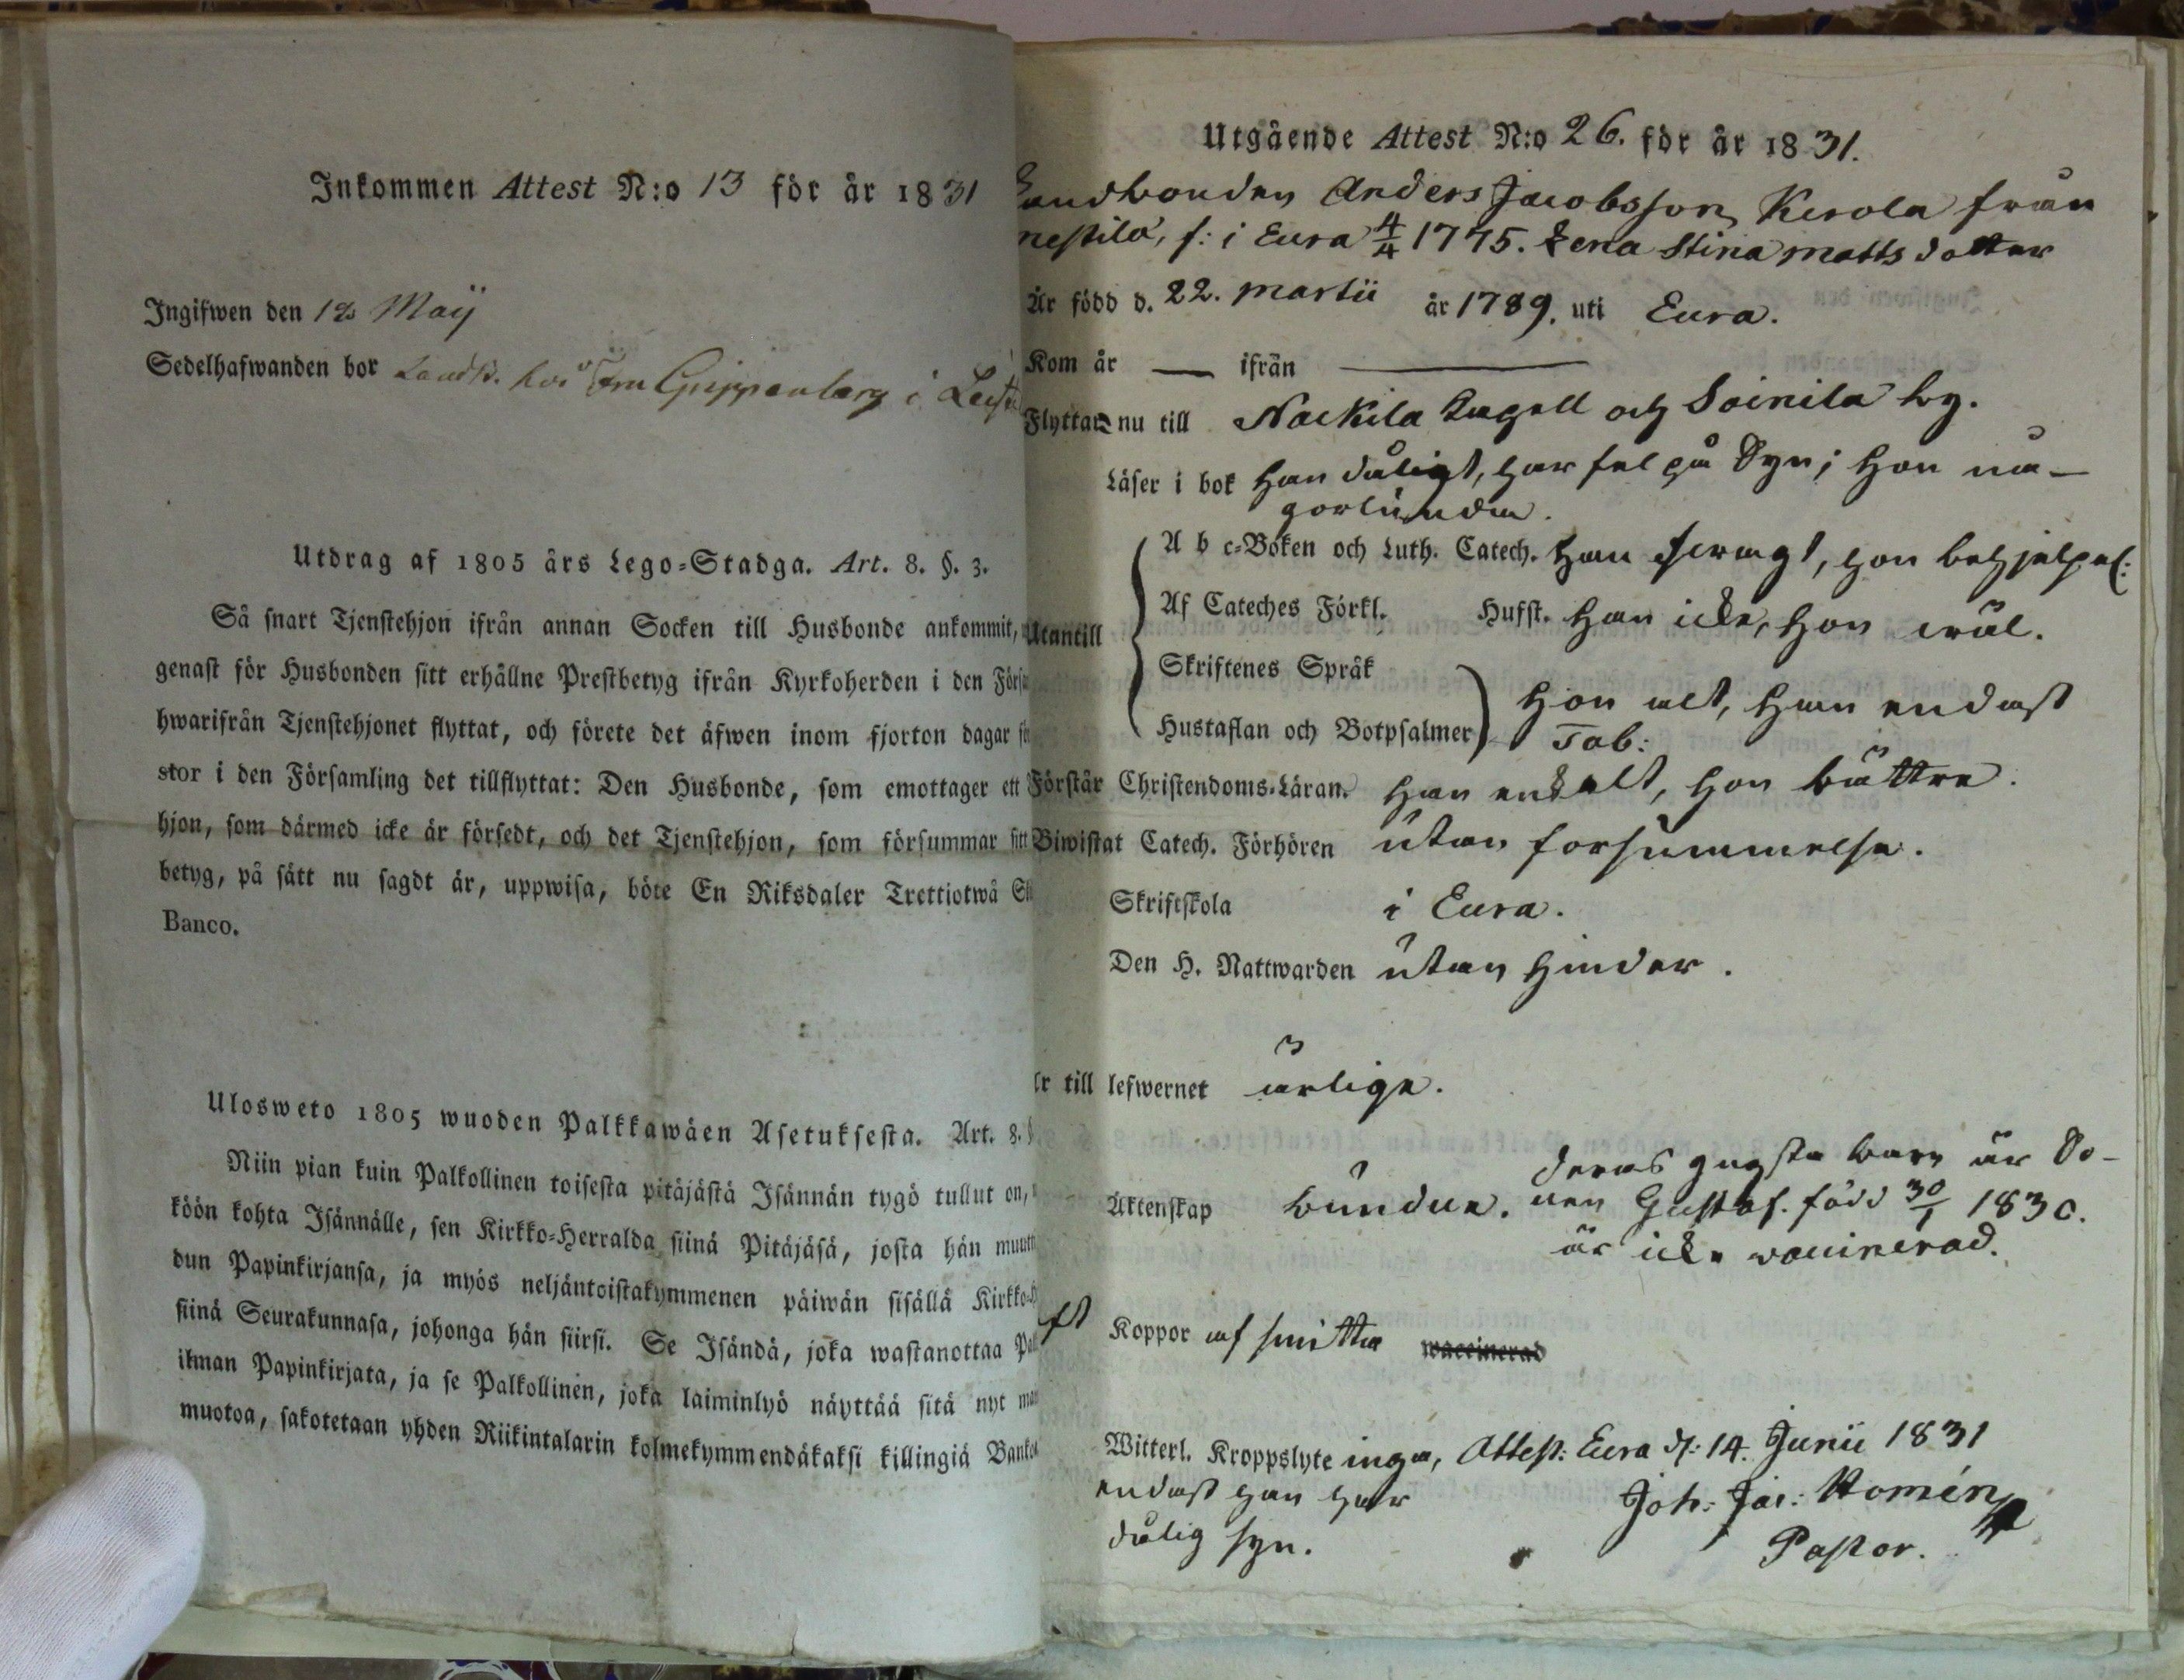 Inkommen Attest N:o 13 för år 1831
Ingifwen den 18 Maÿ
Sedelhafwanden bor Landb. hos Fru Grippenberg i
Utdrag af 1805 års Lego-Stadga. Art. 8. §. 3.
Så snart Tjenstehjon ifrån annan Socken till Husbonde ankommit,
genast för Husbonden sitt erhållne Prestbetyg ifrån Kyrkoherden i den Försa
hwarifrån Tjenstehjonet flyttat, och förete det äfwen inom fjorton dagar
stor i den Församling det tillflyttat: Den Husbonde, som emottager ett
hjon, som därmed icke är försedt, och det Tjenstehjon, som försummar sitt
betyg, på sätt nu sagdt är, uppwisa, böte En Riksdaler Trettiotwå
Banco.
Ulosweto 1805 wuoden Palkkawäen Asetuksesta. Art. 8.
Niin pian kuin Palkollinen toisesta pitäjästä Isännän tygö tullut on,
köön kohta Isännälle, sen Kirkko-Herralda siinä Pitäjäsä, josta hän muutt
dun Papinkirjansa, ja myös neljäntoistakymmenen päiwän sisällä Kirkko-H
siinä Seurakunnasa, johonga hän siirsi. Se Isändä, joka wastanottaa Pal
ilman Papinkirjata, ja se Palkollinen, joka laiminlyö näyttää sitä nyt
muotoa, sakotetaan yhden Riikintalarin kolmekymmendäkaksi killingiä Banko
Utgående Attest N:o 26. för år 1831.
Landbonden Anders Jacobsson Kerola från
nestilä, f: i Eura 4/4 1775. Lena Stina Mattsdotter
Är född d. 22. Martii år 1789. uti Eura.
Kom år — ifrån —
Flyttar nu till Nackila Capell och Soinila by.
Läser i bok Han dåligt, har fel på Syn; hon nå-
gorlunda.
Utantill
A b c-Boken och Luth. Catech. Han swagt, hon behjelpel:
Af Cateches Förkl. Hufst. Han icke, hon wäl.
Skriftenes Språk
Hustaflan och Botpsalmer Hon alt, Han endast
Tab:
Förstår Christendoms-Läran. Han enkelt, hon bättre.
Biwistat Catech. Förhören utan forsummelse.
Skriftskola i Eura.
Den H. Nattwarden utan hinder.
Är till lefwernet ärlige.
Äktenskap bundne. deras yngsta barn är So-
nen Gustaf. född 30/1 1830.
är icke vaccinerad.
Koppor af smitta waccinerad
Witterl. Kroppslyte inga, Attest: Eura d: 14. Junii 1831
endast han har
dålig syn.
Joh: Jac: Homén
Pastor.